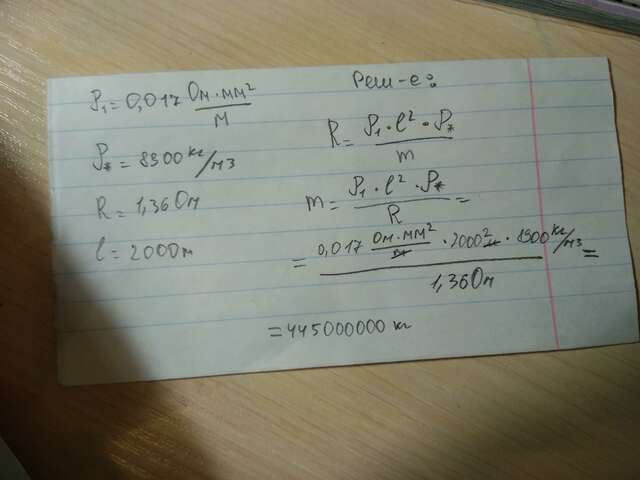 ρ₁ = 0,017 Ом·мм²/м
ρ* = 8900 кг/м3
R = 1,36 Ом
l = 2000м
Реш-е:
R = ρ₁·l²·ρ*/m
m = ρ₁·l²·ρ*/R =
= 0,017 Ом·мм²/м · 2000² м · 8900 кг/м3 / 1,36 Ом =
= 445000000 кг